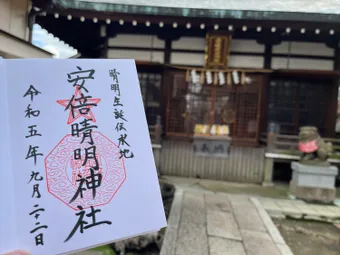 晴明生誕伝承地
安倍晴明神社
令和五年九月二十二日